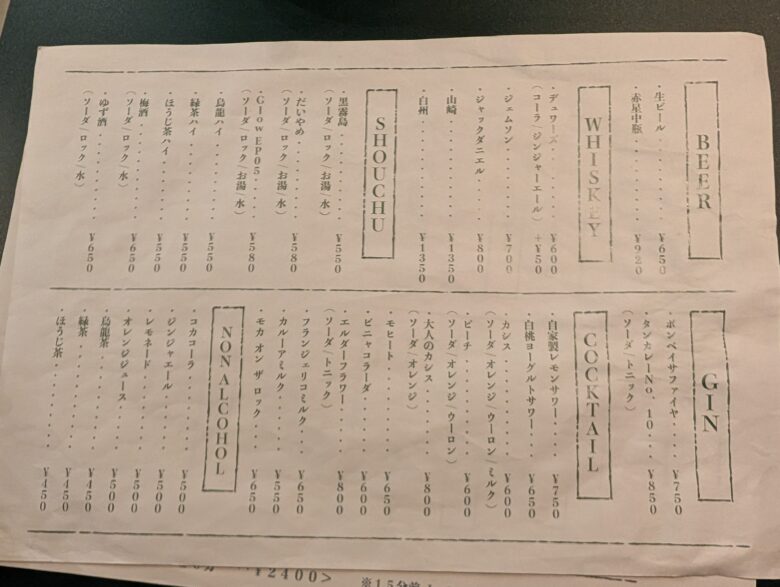 BEER
・生ビール.........¥650
・赤星中瓶.........¥920
WHISKEY
・デュワーズ.........¥600
(コーラ/ジンジャーエール)+¥50
・ジェムソン.........¥700
・ジャックダニエル.....¥800
・山崎............¥1350
・白州............¥1350
SHOUCHU
・黒霧島...........¥550
(ソーダ/ロック/お湯/水)
・だいやめ..........¥580
(ソーダ/ロック/お湯/水)
・Glow EP05.....¥580
(ソーダ/ロック/お湯/水)
・烏龍ハイ..........¥550
・緑茶ハイ..........¥550
・ほうじ茶ハイ........¥550
・梅酒............¥650
(ソーダ/ロック/水)
・ゆず酒...........¥650
(ソーダ/ロック/水)
GIN
・ボンベイサファイヤ....¥750
・タンカレーNo. 10...¥850
(ソーダ/トニック)
COCKTAIL
・自家製レモンサワー...¥750
・白桃ヨーグルトサワー..¥650
・カシス..........¥600
(ソーダ/オレンジ/ウーロン/ミルク)
・ピーチ..........¥600
(ソーダ/オレンジ/ウーロン)
・大人のカシス.......¥800
(ソーダ/オレンジ)
・モヒート.........¥650
・ピニャコラーダ......¥600
・エルダーフラワー.....¥800
(ソーダ/トニック)
・フランジェリコミルク...¥650
・カルーアミルク......¥550
・モカ オン ザ ロック...¥650
NON ALCOHOL
・コカコーラ........¥500
・ジンジャエール......¥500
・レモネード........¥500
・オレンジジュース.....¥500
・烏龍茶..........¥450
・緑茶...........¥450
・ほうじ茶.........¥450
¥2400>